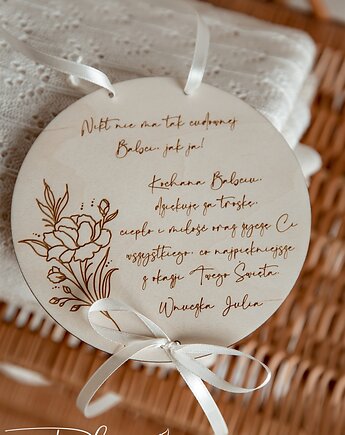 Nikt nie ma tak cudownej
Babci, jak ja!
Kochana Babciu,
dziękuję za troskę,
ciepło i miłość oraz życzę Ci
wszystkiego, co najpiękniejsze
z okazji Twego Święta.
Wnuczka Julia